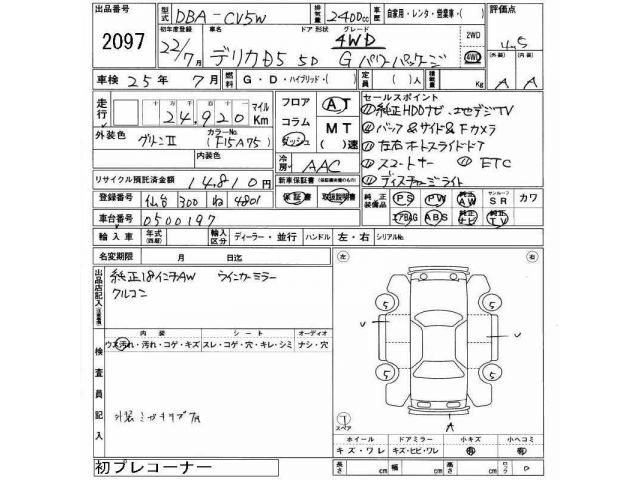 出品番号 2097
型式 DBA-CV5W 排気量 2400cc 車歴 自家用・レンタ・営業車・( ) 評価点 4.5
初年度登録 22/7月 車名 デリカD5 ドア 形状 5D グレード 4WD Gパワーパッケージ 2WD 4WD
車検 25年 7月 燃料 G・D・ハイブリッド・( ) 定員 ( )人 積載量 Kg (外装) A (内装) A
走行 十 万 千 百 十 一 24,920 マイル Km
フロア コラム ダッシュ AT MT ( )速
セールスポイント
① 純正HDDナビ、地デジTV
② バック&サイド&Fカメラ
③ 左右オートスライドドア
④ スマートキー ETC
⑪ ディスチャージライト
外装色 グリーンⅡ カラーNo. (F15A75) 内装色
冷房 AAC
リサイクル預託済金額 14,810円
新車保証書 (保証継承の有るもの) 保証書 取扱説明書
純正装備品 PS PW AW サンルーフ SR カワ
エアBAG ABS 純正ナビ 純正TV
登録番号 仙台 300 ね 4801
車台番号 0500197
輸入車 年式(西暦) 年 輸入区分 ディーラー・並行 ハンドル 左・右 シリアルNo.
名変期限 月 日迄
出品店記入 純正18インチAW ウインカーミラー
クルコン
検査員記入
内装 シート オーディオ
ウス汚れ・汚れ・コゲ・キズ スレ・コゲ・穴・キレ・シミ ナシ・穴
外装ミガキキズ7A
左 右
5 5
U U
5 5
1 スペア A
ホイール ドアミラー 小キズ 小ヘコミ
キズ・ワレ キズ・ヒビ・ワレ 有 有
長さ cm 幅 cm 高さ cm ロック 0
初プレコーナー